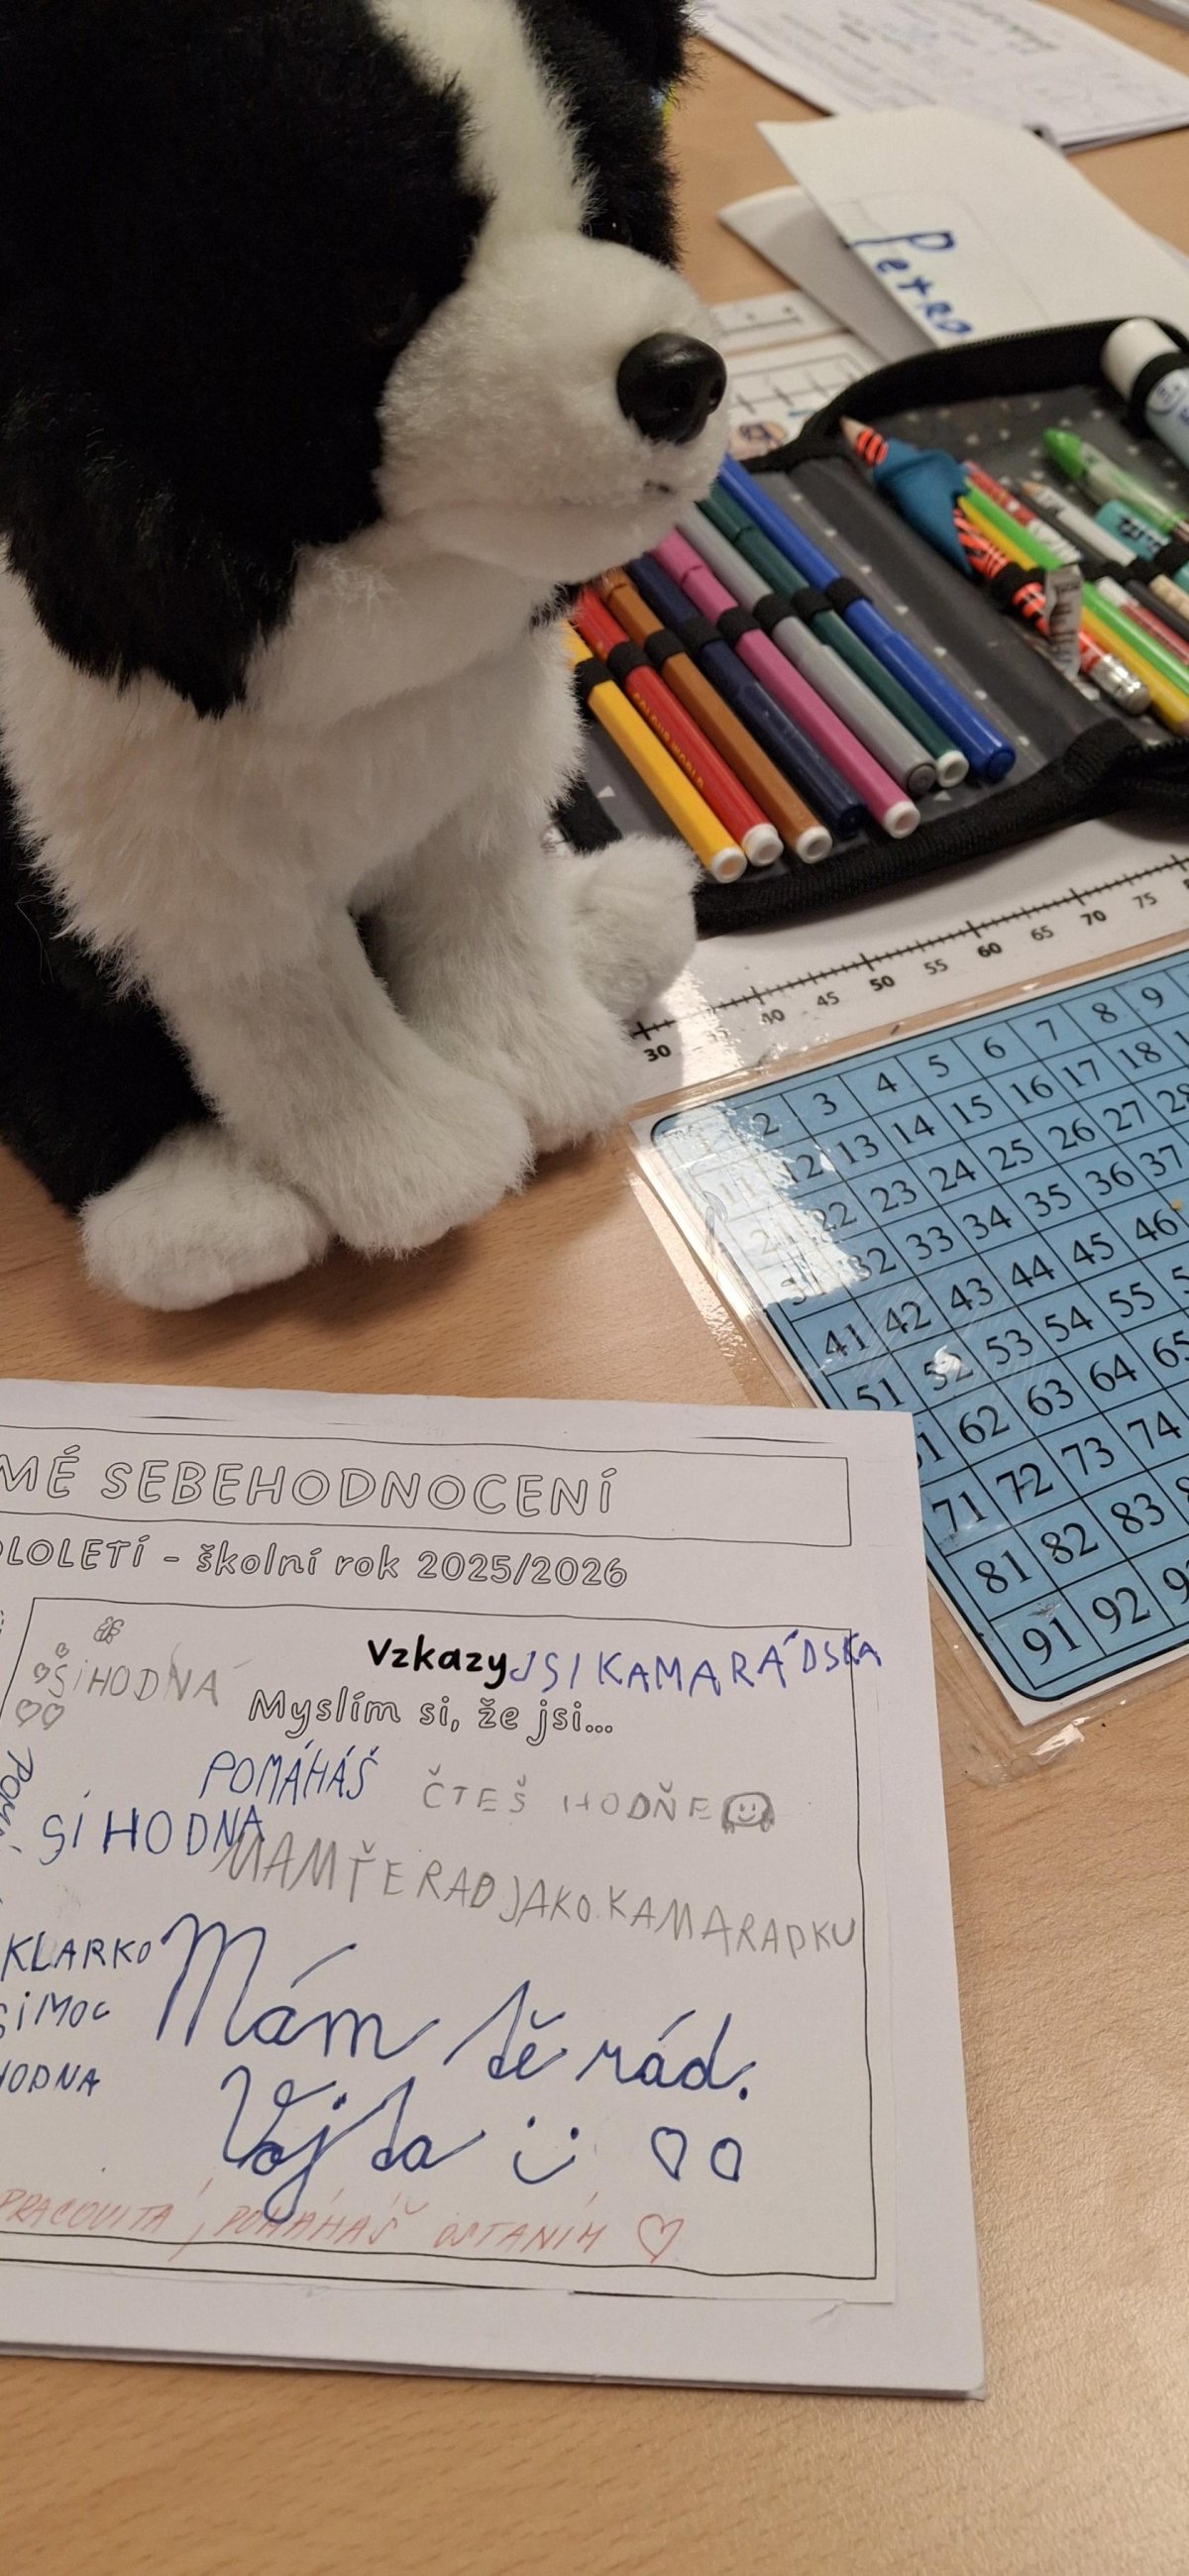 Petro
COLOUR WORLD
30 35 40 45 50 55 60 65 70 75
2 3 4 5 6 7 8 9
11 12 13 14 15 16 17 18
21 22 23 24 25 26 27 28
32 33 34 35 36 37
41 42 43 44 45 46
51 52 53 54 55
62 63 64 65
71 72 73 74
81 82 83
91 92
MÉ SEBEHODNOCENÍ
OLOLETÍ - školní rok 2025/2026
Vzkazy JSI KAMARÁDSKA
ŠIHODNÁ
Myslím si, že jsi...
POMÁHÁŠ
ČTEŠ HODŇE
SI HODNA
MAM ŤE RAD JAKO KAMARADKU
KLARKO
SIMOC
HODNA
Mám tě rád.
Vojta
PRACOVITÁ, POMÁHÁŠ OSTANÍM